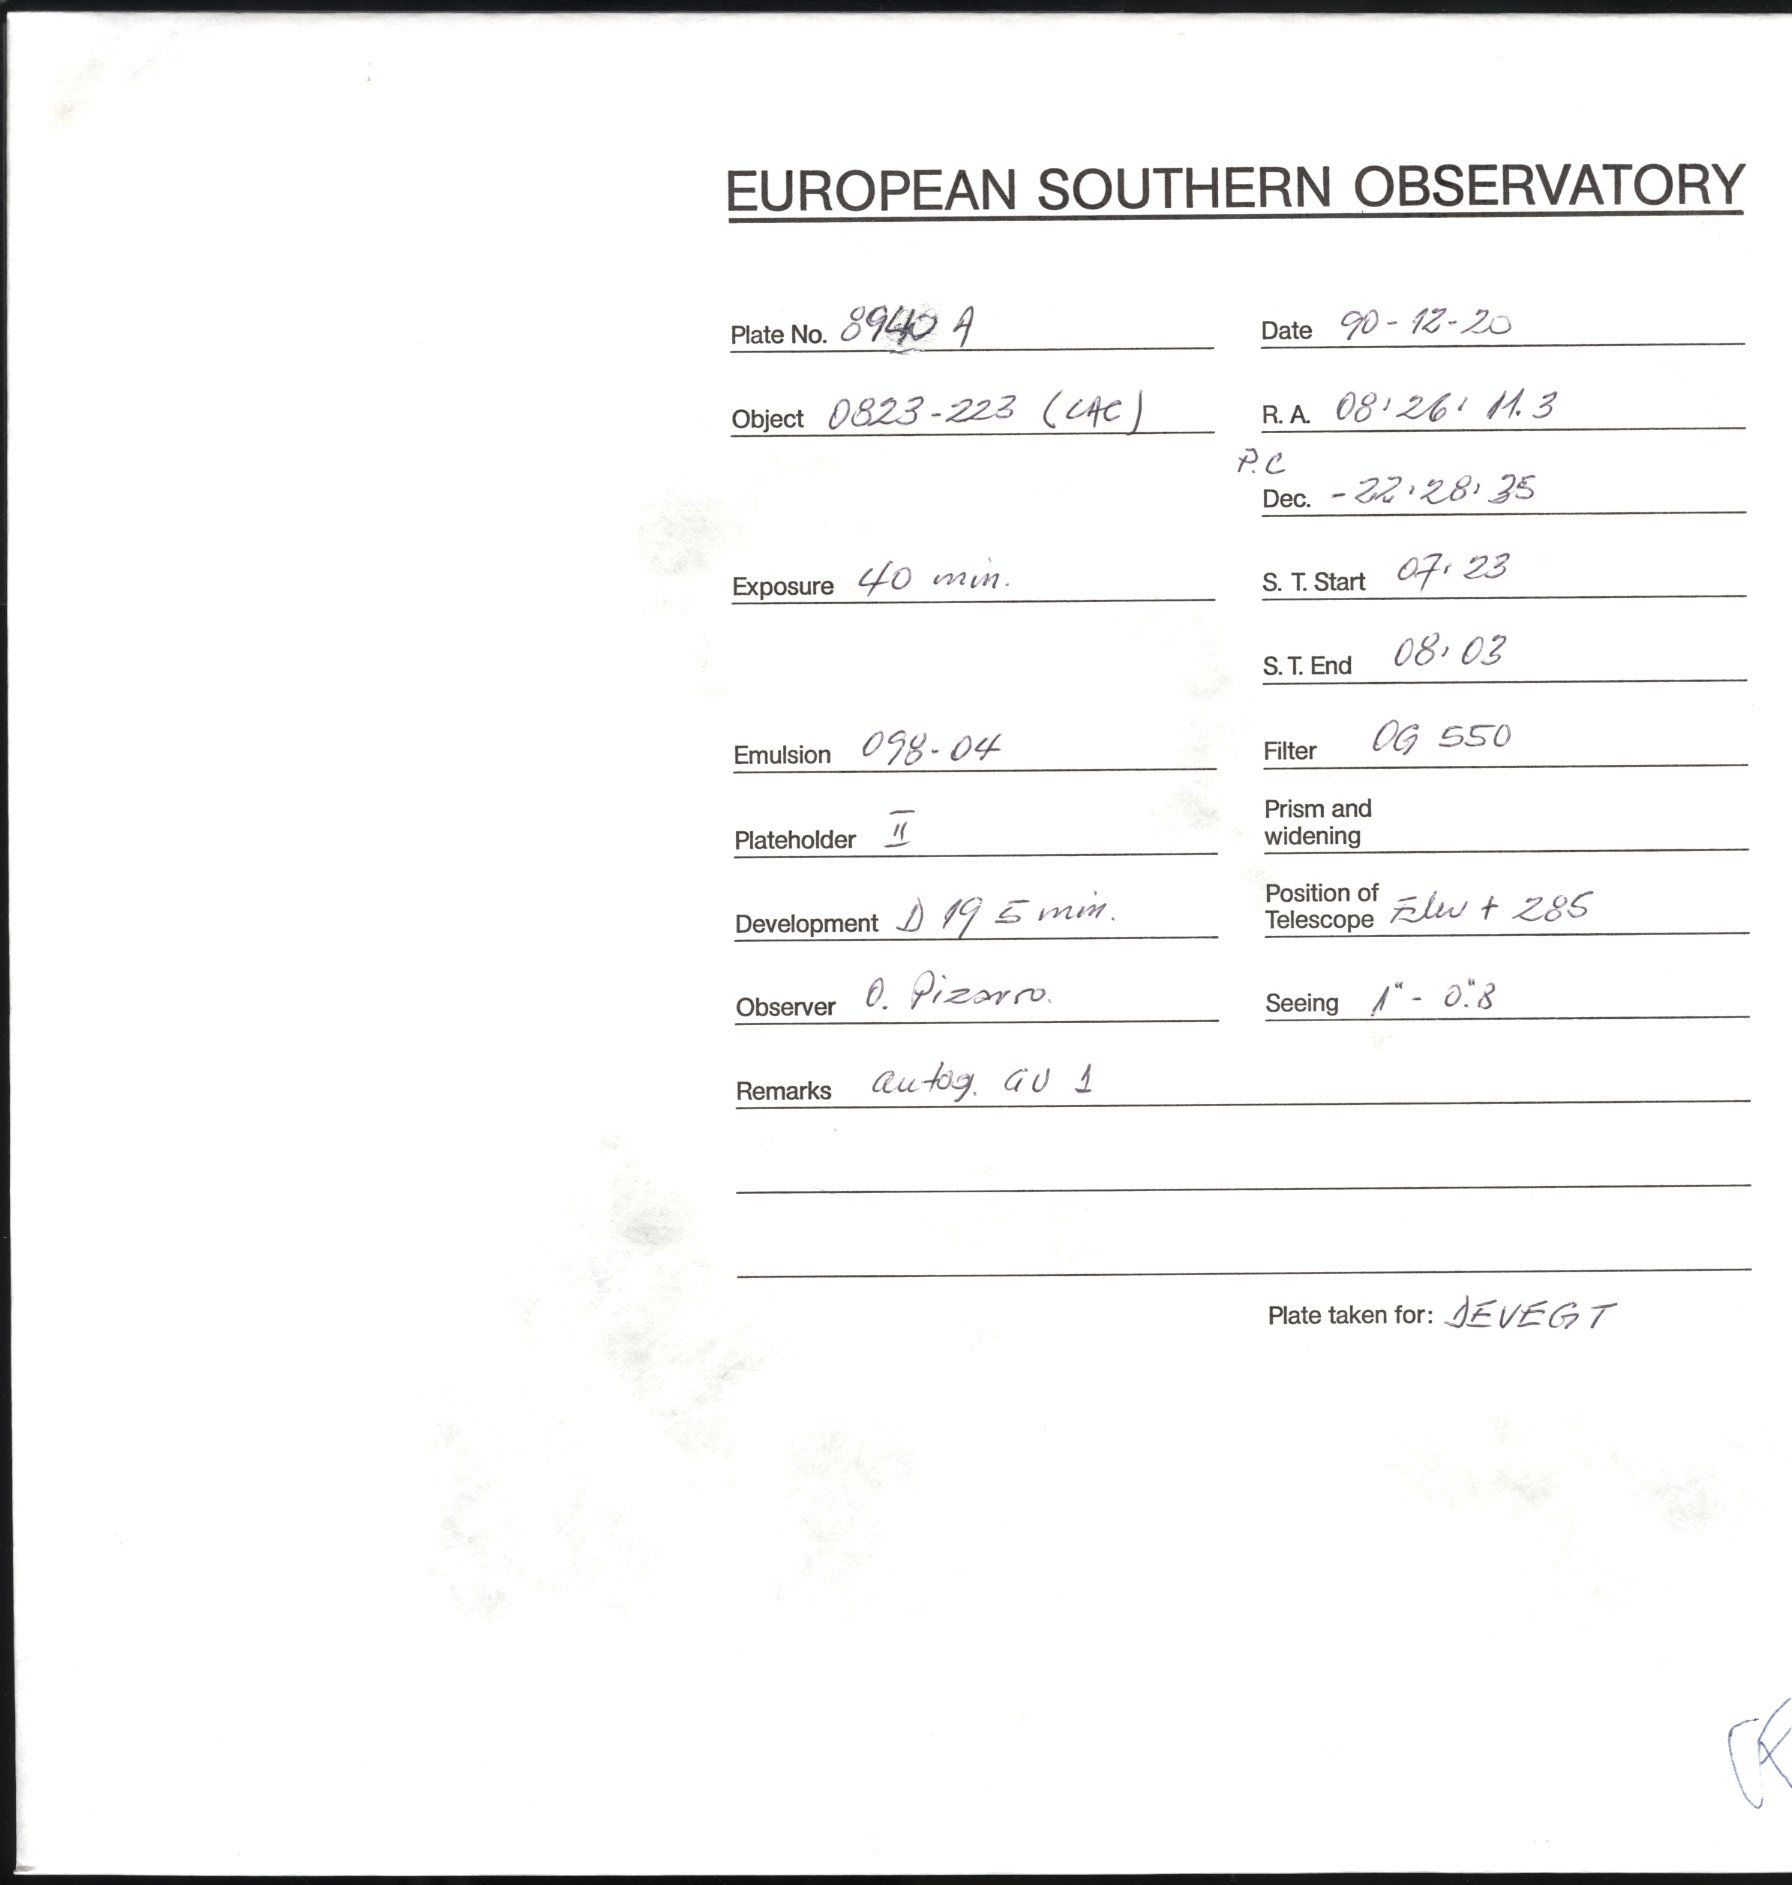 EUROPEAN SOUTHERN OBSERVATORY
Plate No. 8940 A
Date 90-12-20
Object 0823-223 (LAC)
R. A. 08: 26: 11.3
P.C
Dec. -22: 28: 35
Exposure 40 min.
S. T. Start 07: 23
S. T. End 08: 03
Emulsion 098-04
Filter OG 550
Plateholder II
Prism and
widening
Development D 19 5 min.
Position of
Telescope + 285
Observer O. Pizarro.
Seeing 1" - 0."8
Remarks autog. GU 1
Plate taken for: DEVEGT